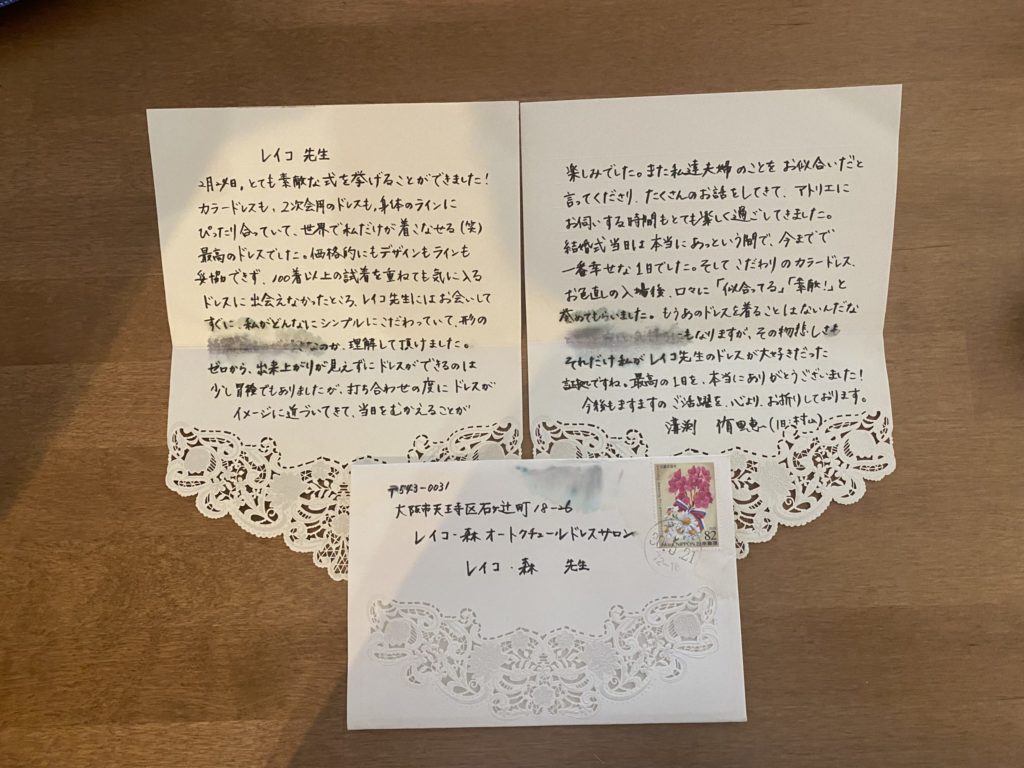 レイコ 先生
2月24日、とても素敵な式を挙げることができました!
カラードレスも、2次会用のドレスも、身体のラインに
ぴったり合っていて、世界で私だけが着こなせる(笑)
最高のドレスでした。価格的にもデザインもラインも
妥協できず、100着以上の試着を重ねても気に入る
ドレスに出会えなかったところ、レイコ先生にはお会いして
すぐに、私がどんなにシンプルにこだわっていて、形の
なのか、理解して頂けました。
ゼロから、出来上がりが見えずにドレスができるのは
少し冒険でもありましたが、打ち合わせの度にドレスが
イメージに近づいてきて、当日をむかえることが
楽しみでした。また私達夫婦のことをお似合いだと
言ってくださり、たくさんのお話をしてきて、アトリエに
お伺いする時間もとても楽しく過ごしてきました。
結婚式当日は本当にあっという間で、今までで
一番幸せな1日でした。そしてこだわりのカラードレス、
お色直しの入場後、口々に「似合ってる」「素敵!」と
誉めてもらいました。もうあのドレスを着ることはないんだな
もなりますが、その物悲しさも
それだけ私がレイコ先生のドレスが大好きだった
証拠ですね。最高の1日を、本当にありがとうございました!
今後もますますのご活躍を、心より、お祈りしております。
(旧:木村)
〒543-0031
大阪市天王寺区石ヶ辻町18-26
レイコ・森オートクチュールドレスサロン
レイコ・森 先生
82
NIPPON 日本郵便
21
12-18